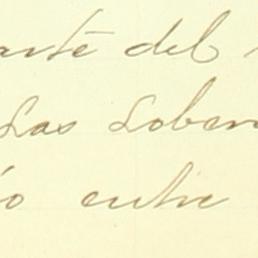 arte del
Las Lober
io entre